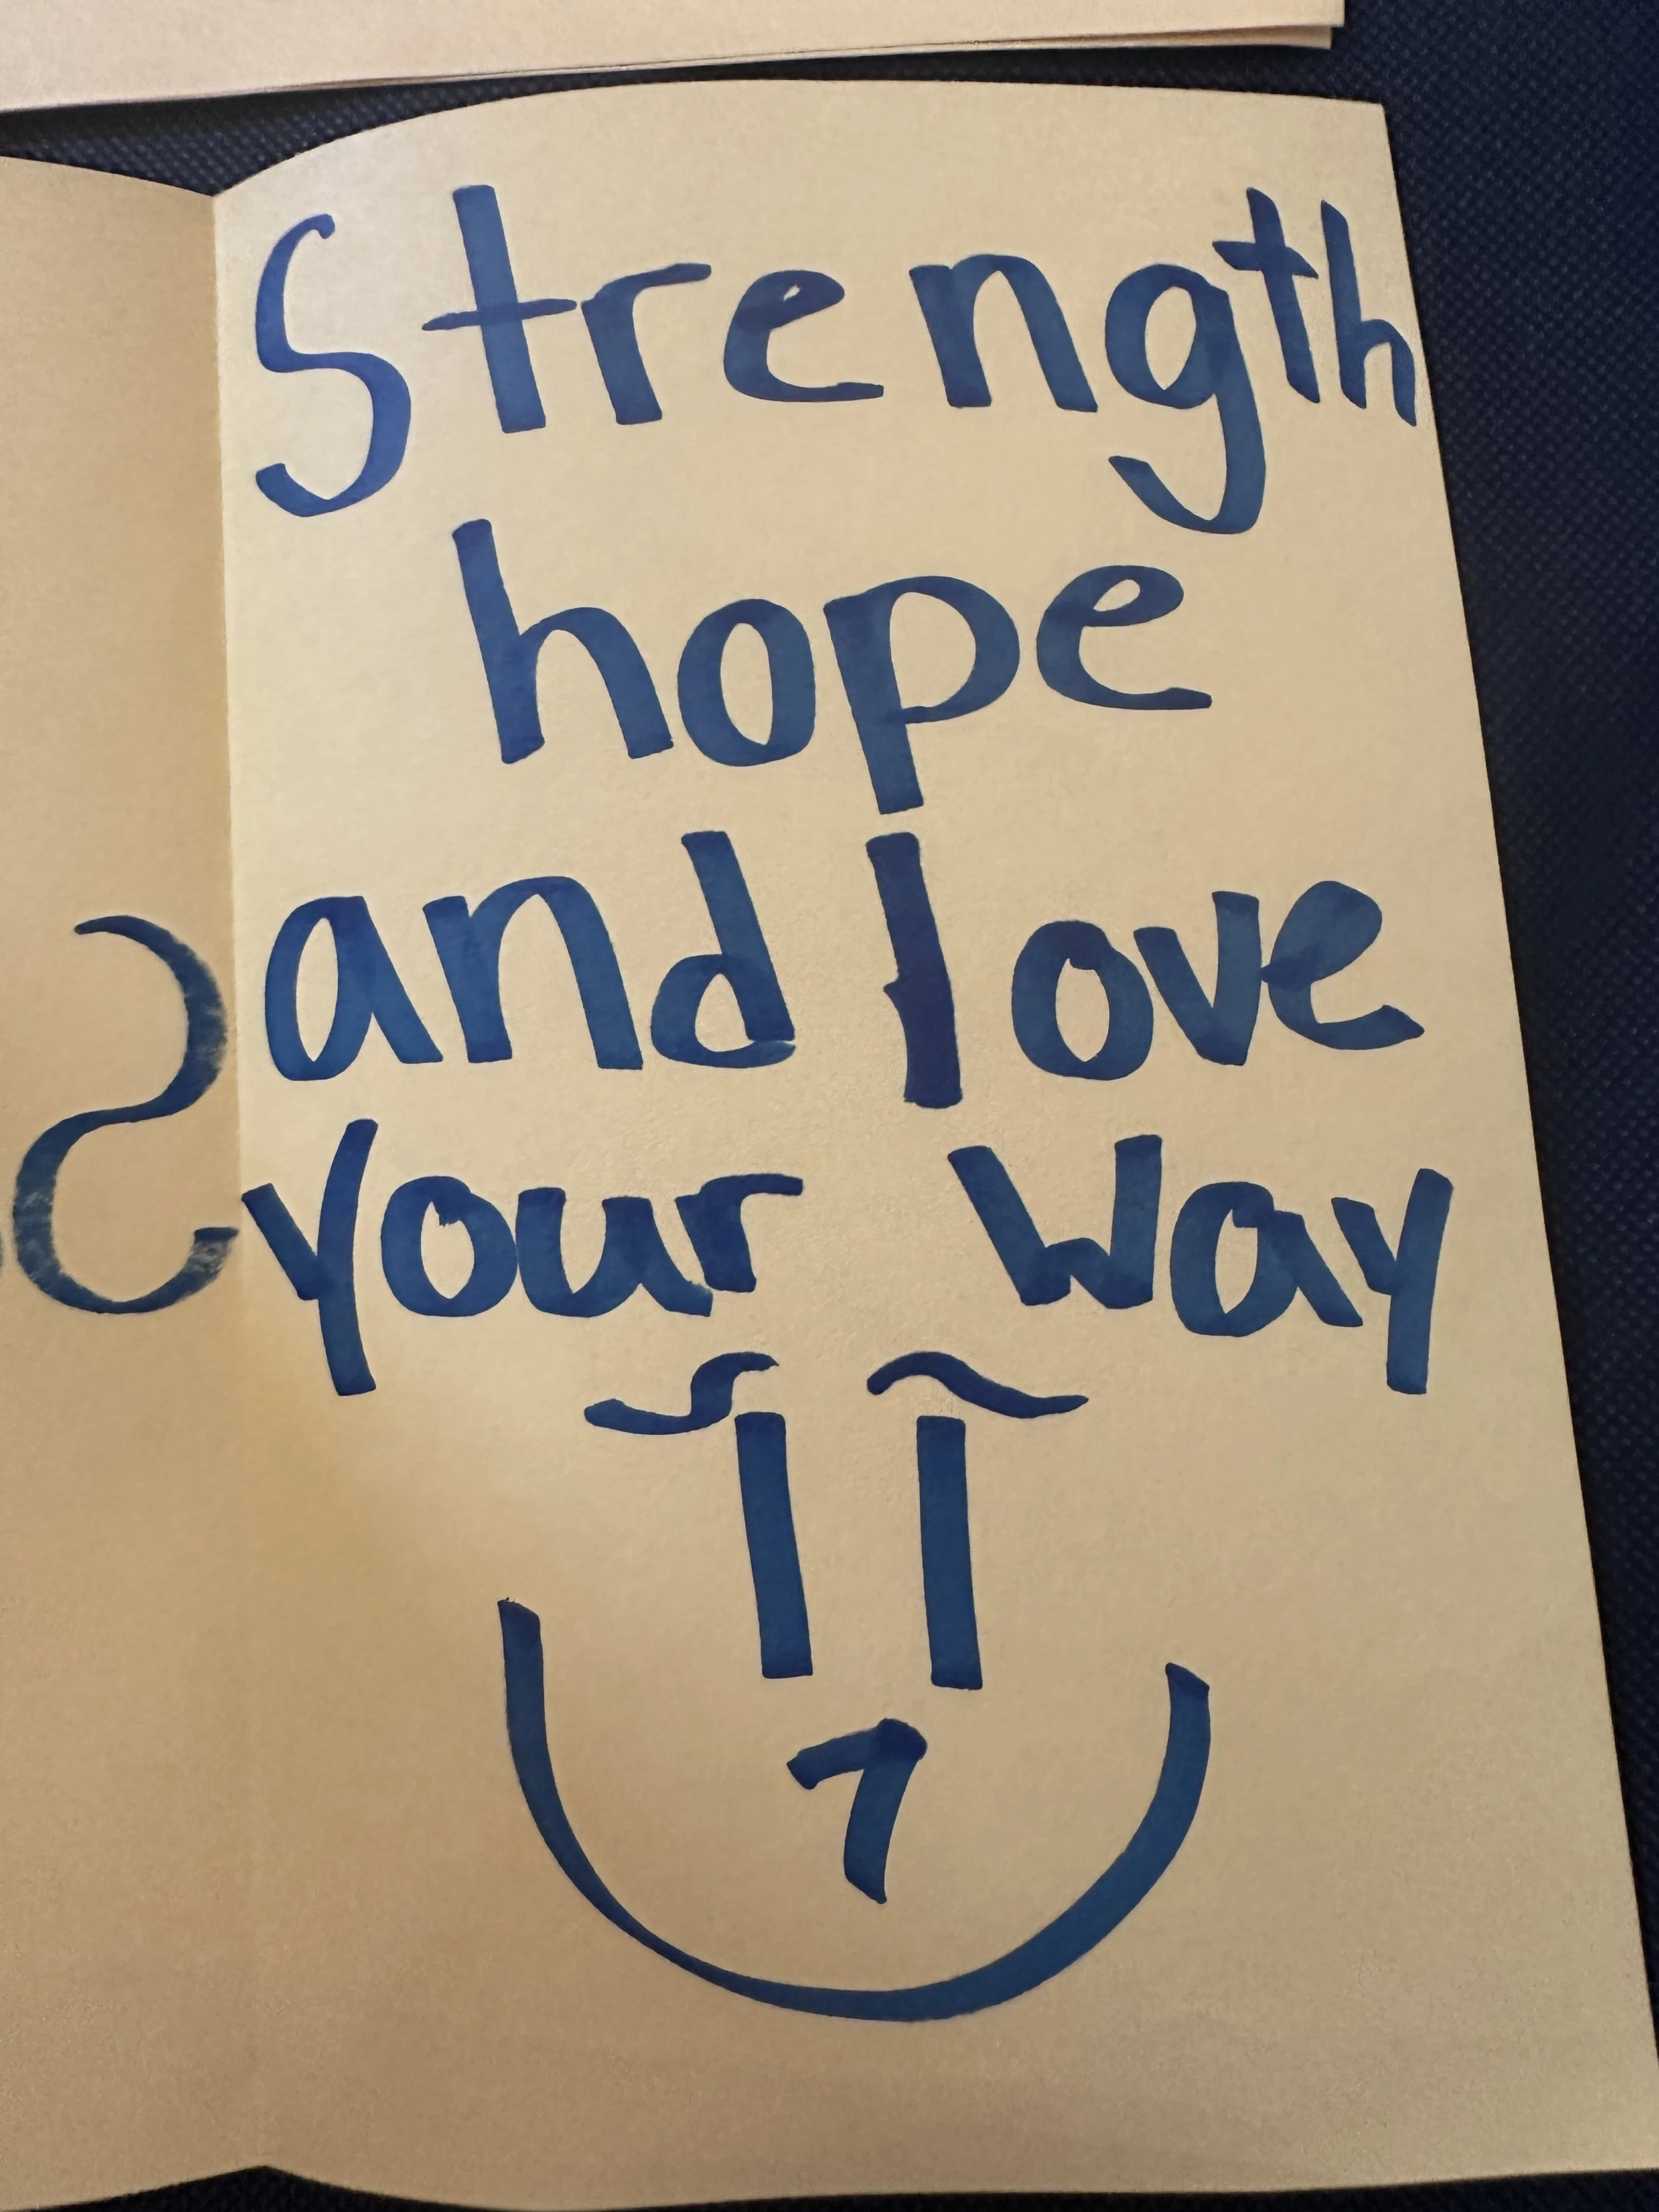 Strength
hope
and love
your way